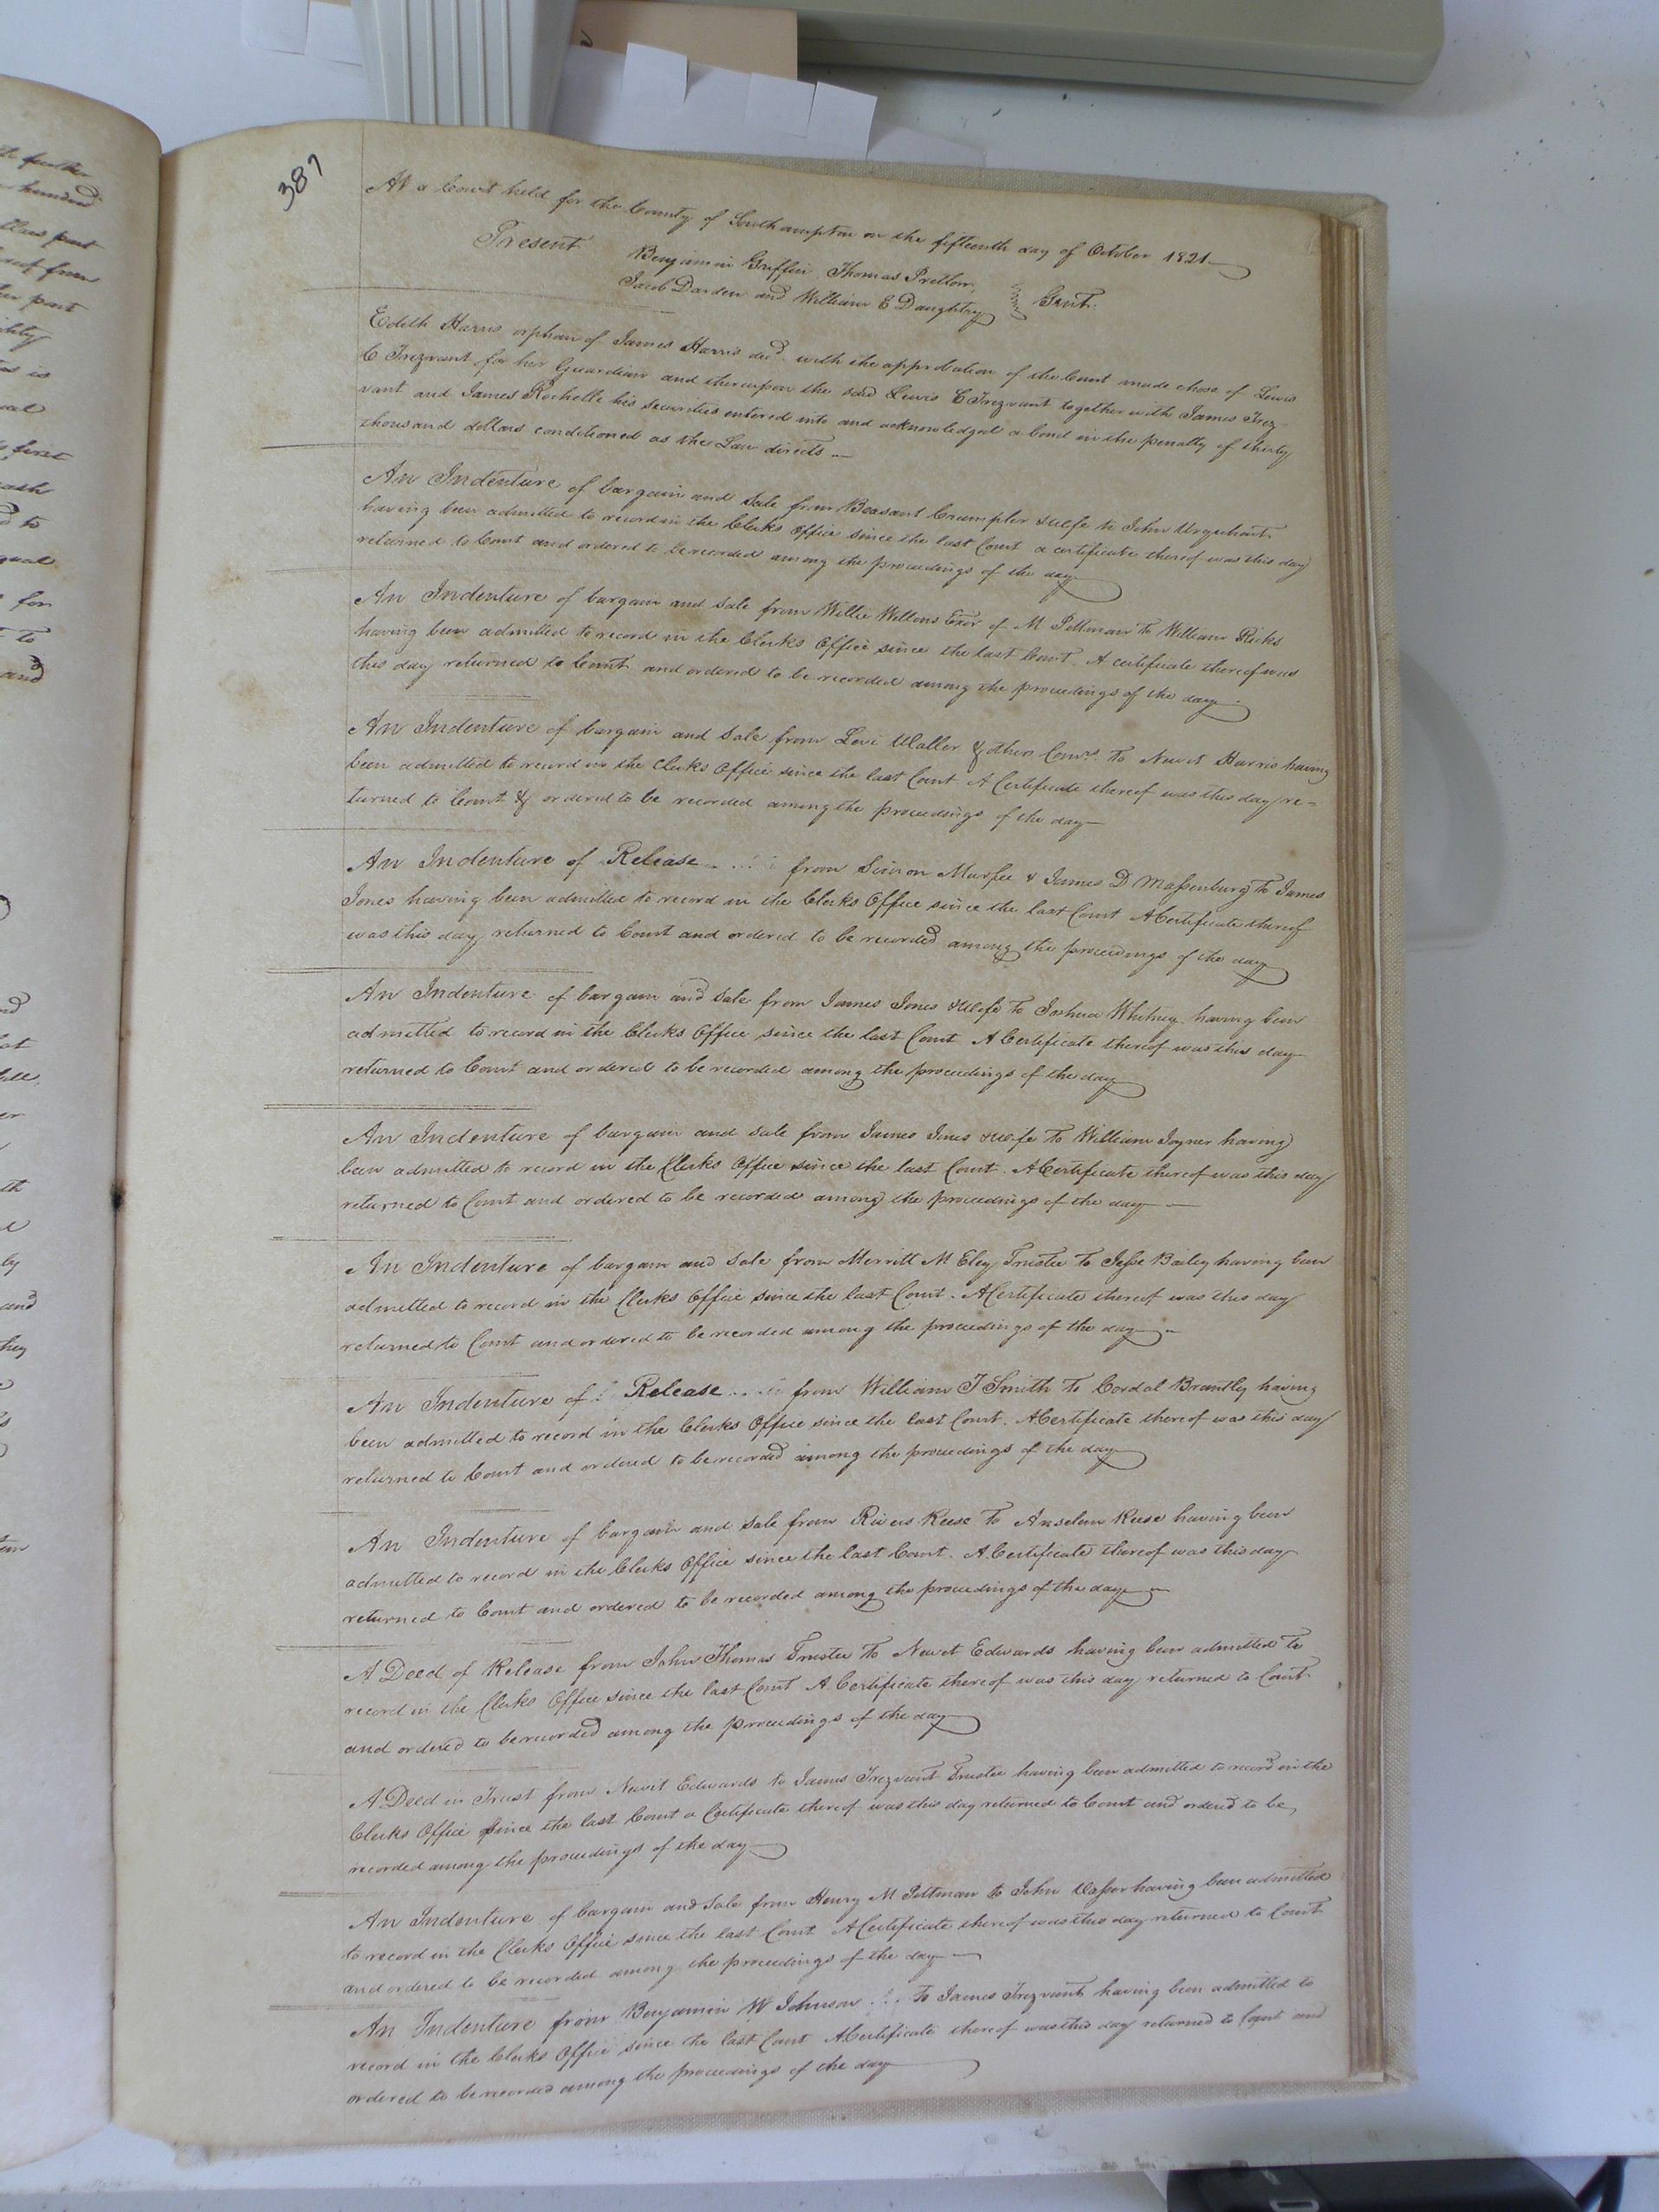 387
At a Court held for the County of Southampton on the fifteenth day of October 1821
Present Benjamin Griffin, Thomas Pretlow,
Jacob Darden and William E Daughtry Gent.
Edith Harris orphan of James Harris decd. with the approbation of the Court made chose of Lewis
C Trezvant for her Guardian and thereupon the said Lewis C Trezvant together with James Trez-
vant and James Rochelle his securities entered into and acknowledged a bond in the penalty of thirty
thousand dollars conditioned as the Law directs
An Indenture of bargain and Sale from Beasant Crumpler & wife to John Urquhart
having been admitted to record in the Clerks Office since the last Court a certificate thereof was this day
returned to Court and ordered to be recorded among the proceedings of the day
An Indenture of bargain and Sale from Willie Wellons Exor of M Pittman to William Ricks
having been admitted to record in the Clerks Office since the last Court. A certificate thereof was
this day returned to Court and ordered to be recorded among the proceedings of the day.
An Indenture of bargain and Sale from Levi Waller & others Comrs. to Newit Harris having
been admitted to record in the Clerks Office since the last Court A Certificate thereof was this day re=
turned to Court & ordered to be recorded among the proceedings of the day
An Indenture of Release from Simon Murfee & James D Massenburg to James
Jones having been admitted to record in the Clerks Office since the last Court A Certificate thereof
was this day returned to Court and ordered to be recorded among the proceedings of the day
An Indenture of bargain and Sale from James Jones & wife to Joshua Whitney having been
admitted to record in the Clerks Office since the last Court A Certificate thereof was this day
returned to Court and ordered to be recorded among the proceedings of the day
An Indenture of bargain and Sale from James Jones & wife to William Joyner having
been admitted to record in the Clerks Office since the last Court. A Certificate thereof was this day
returned to Court and ordered to be recorded among the proceedings of the day
An Indenture of bargain and Sale from Merritt M Eley Trustee to Jesse Bailey having been
admitted to record in the Clerks Office since the last Court. A Certificate thereof was this day
returned to Court and ordered to be recorded among the proceedings of the day
An Indenture of Release from William J Smith to Cordal Brantley having
been admitted to record in the Clerks Office since the last Court. A Certificate thereof was this day
returned to Court and ordered to be recorded among the proceedings of the day
An Indenture of bargain and Sale from Rivers Reese to Anselem Reese having been
admitted to record in the Clerks Office since the last Court. A Certificate thereof was this day
returned to Court and ordered to be recorded among the proceedings of the day
A Deed of Release from John Thomas Trustee to Newit Edwards having been admitted to
record in the Clerks Office since the last Court A Certificate thereof was this day returned to Court
and ordered to be recorded among the proceedings of the day
A Deed in Trust from Newit Edwards to James Trezvant Trustee having been admitted to record in the
Clerks Office since the last Court a Certificate thereof was this day returned to Court and ordered to be
recorded among the proceedings of the day
An Indenture of bargain and Sale from Henry M Pittman to John having been admitted
to record in the Clerks Office since the last Court A Certificate thereof was this day returned to Court
and ordered to be recorded among the proceedings of the day
An Indenture from Benjamin W Johnson to James Trezvant having been admitted to
record in the Clerks Office since the last Court A Certificate thereof was this day returned to Court and
ordered to be recorded among the proceedings of the day